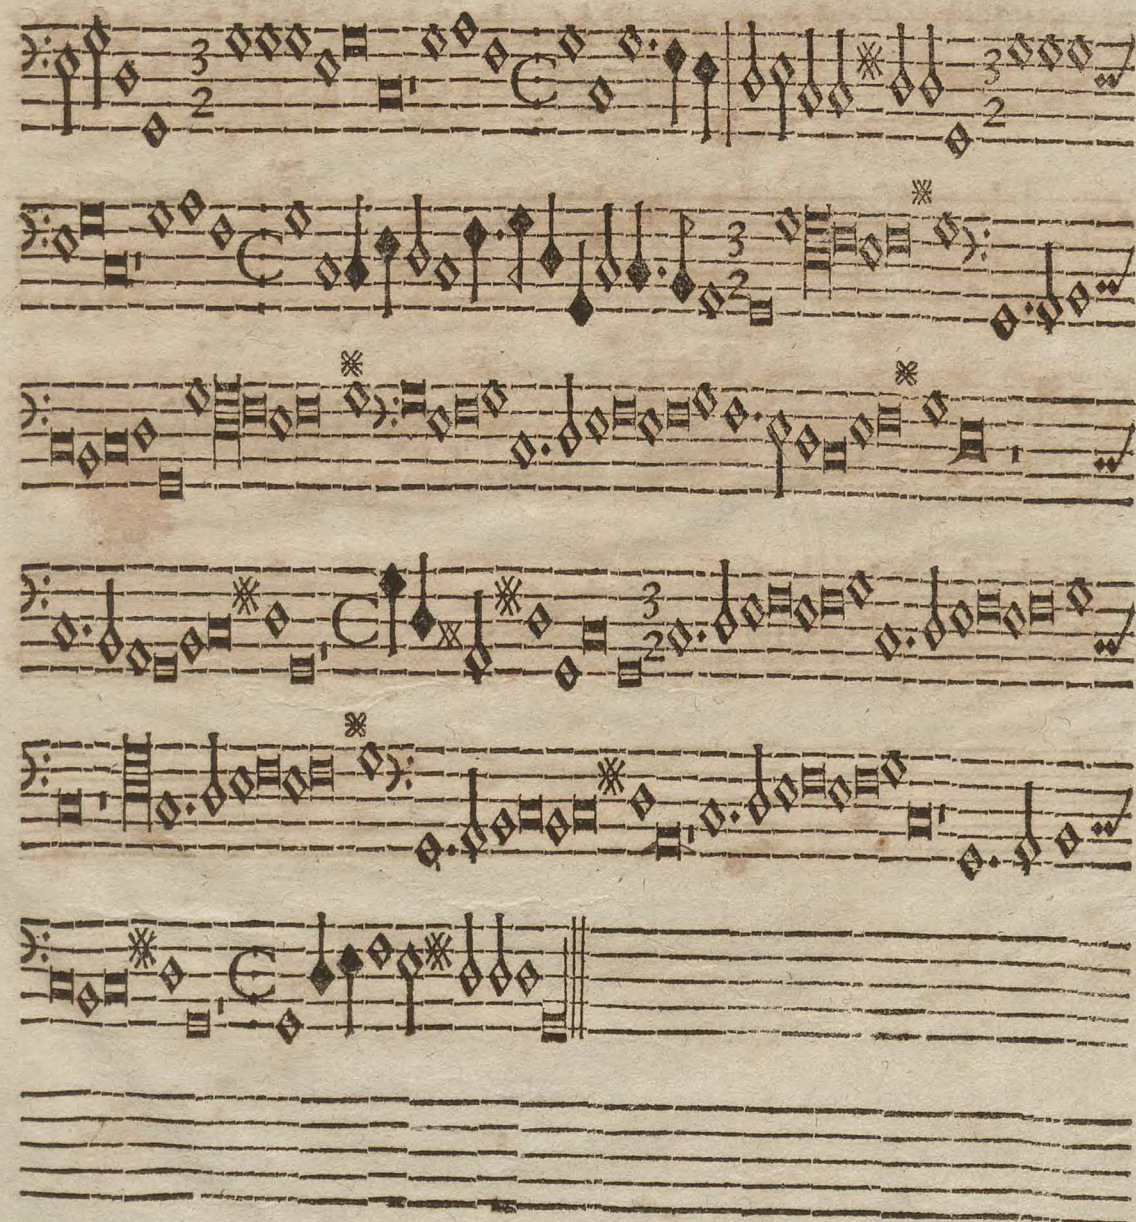 3 2 C 3 2
C 3 2
C 3 2
C